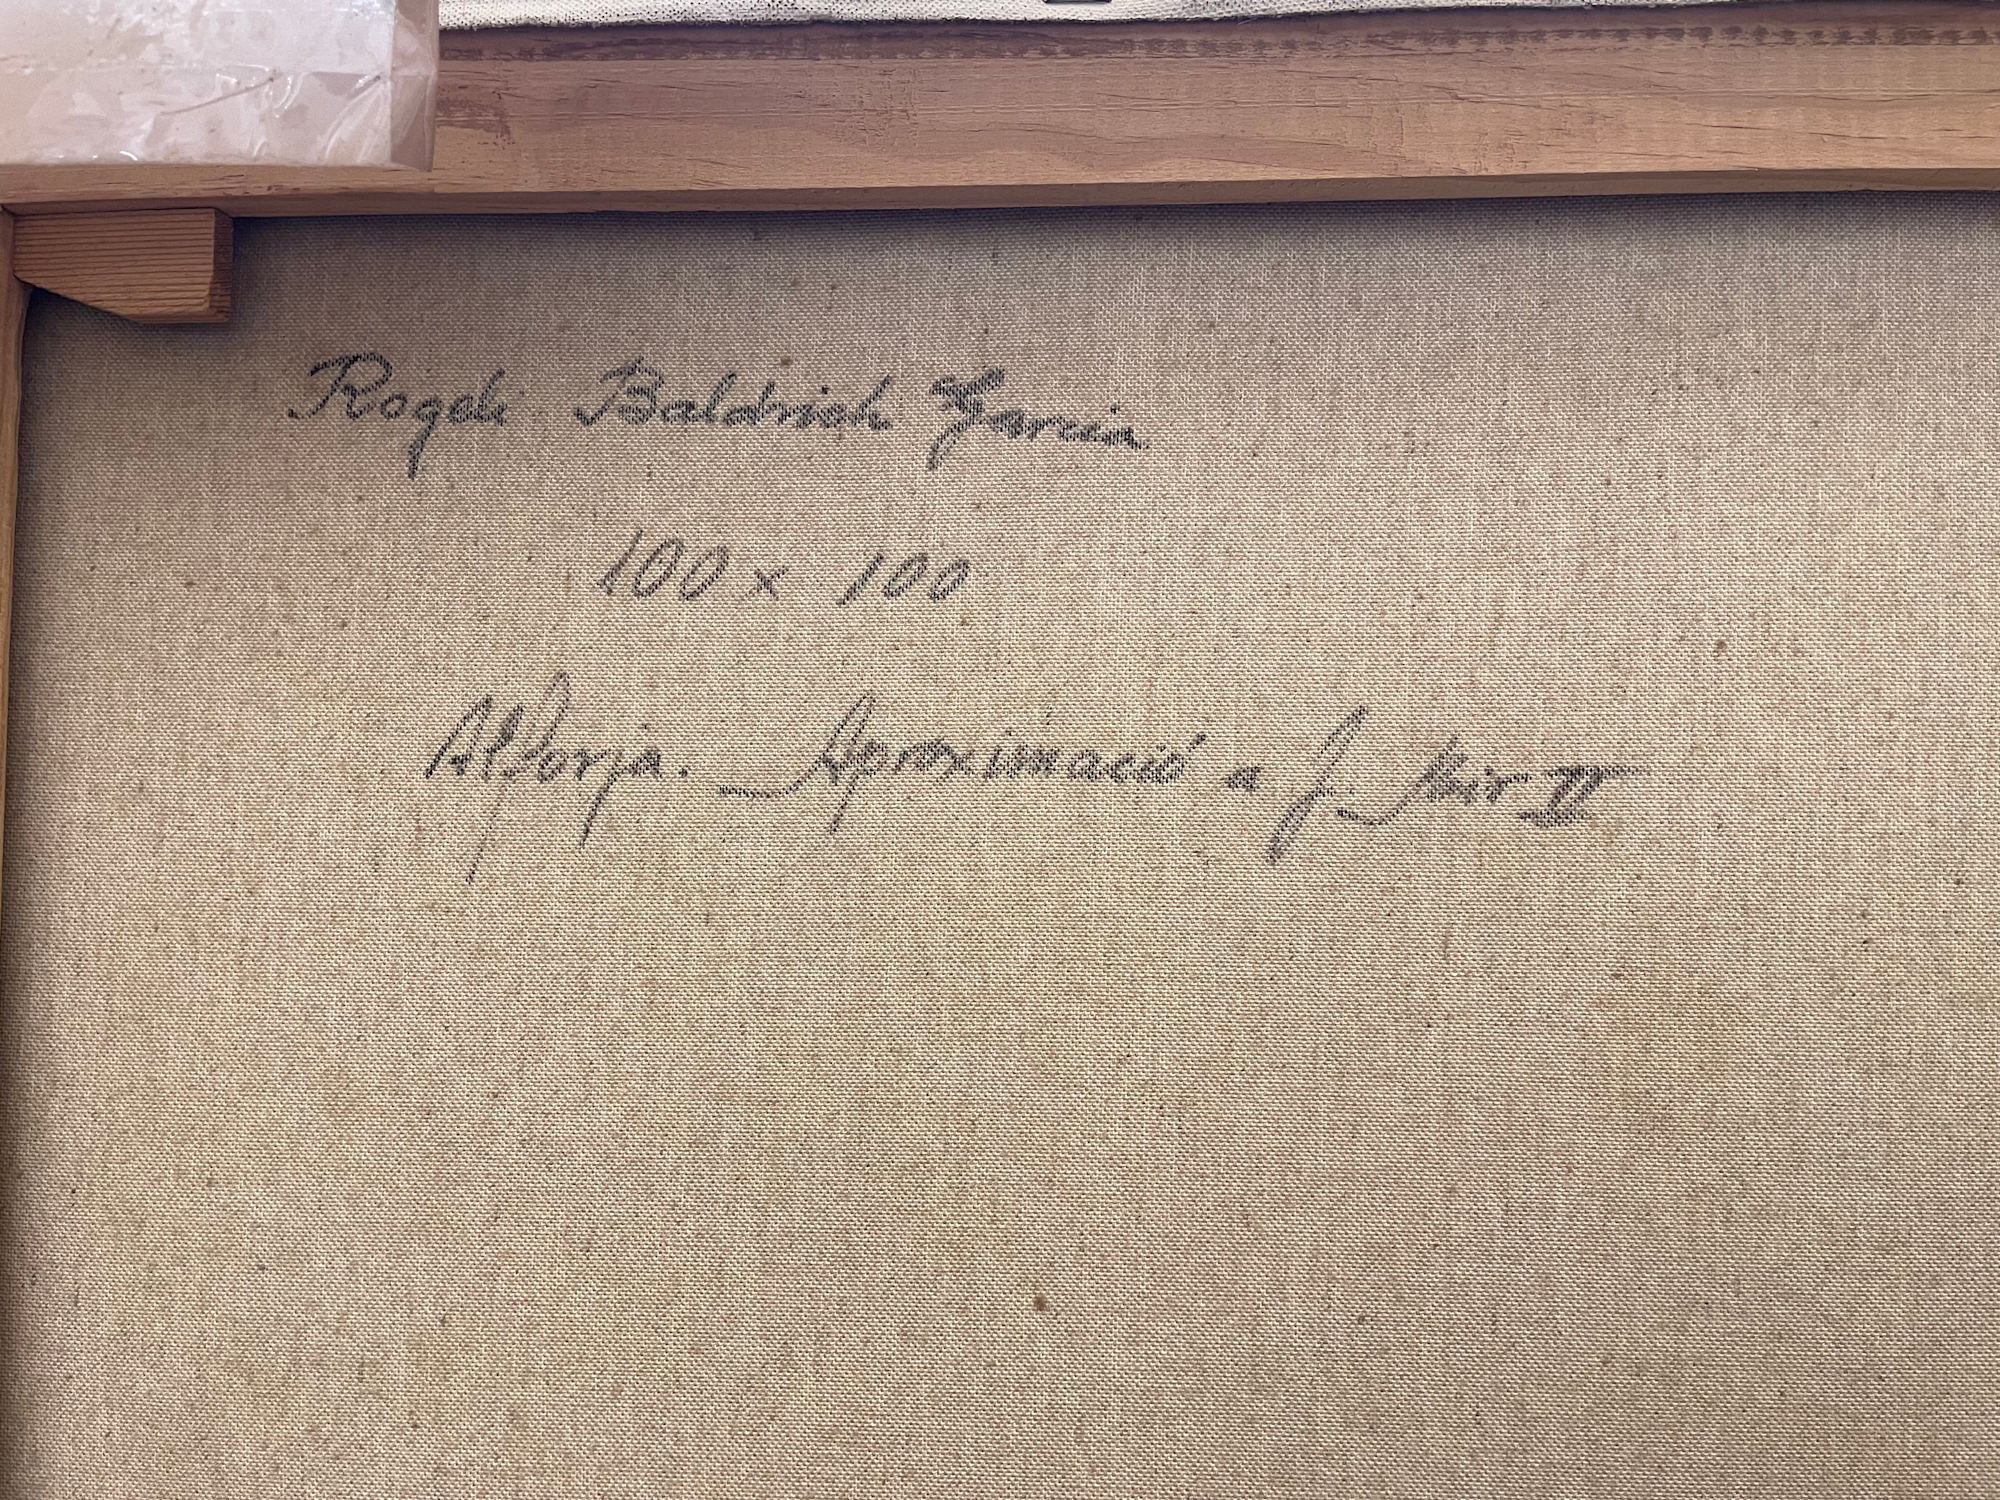 Rogeli Baldrich Garcia
100 x 100
Alforja. Aproximació a J. Mir II